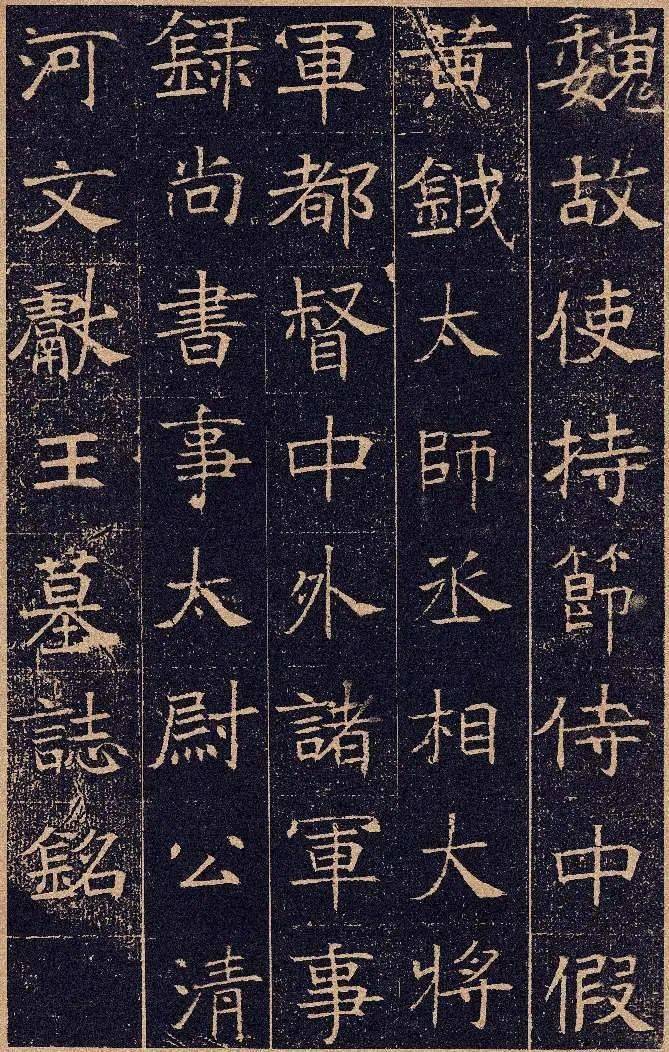 魏故使持節侍中假
黃鉞太師丞相大將
軍都督中外諸軍事
錄尚書事太尉公清
河文獻王墓誌銘